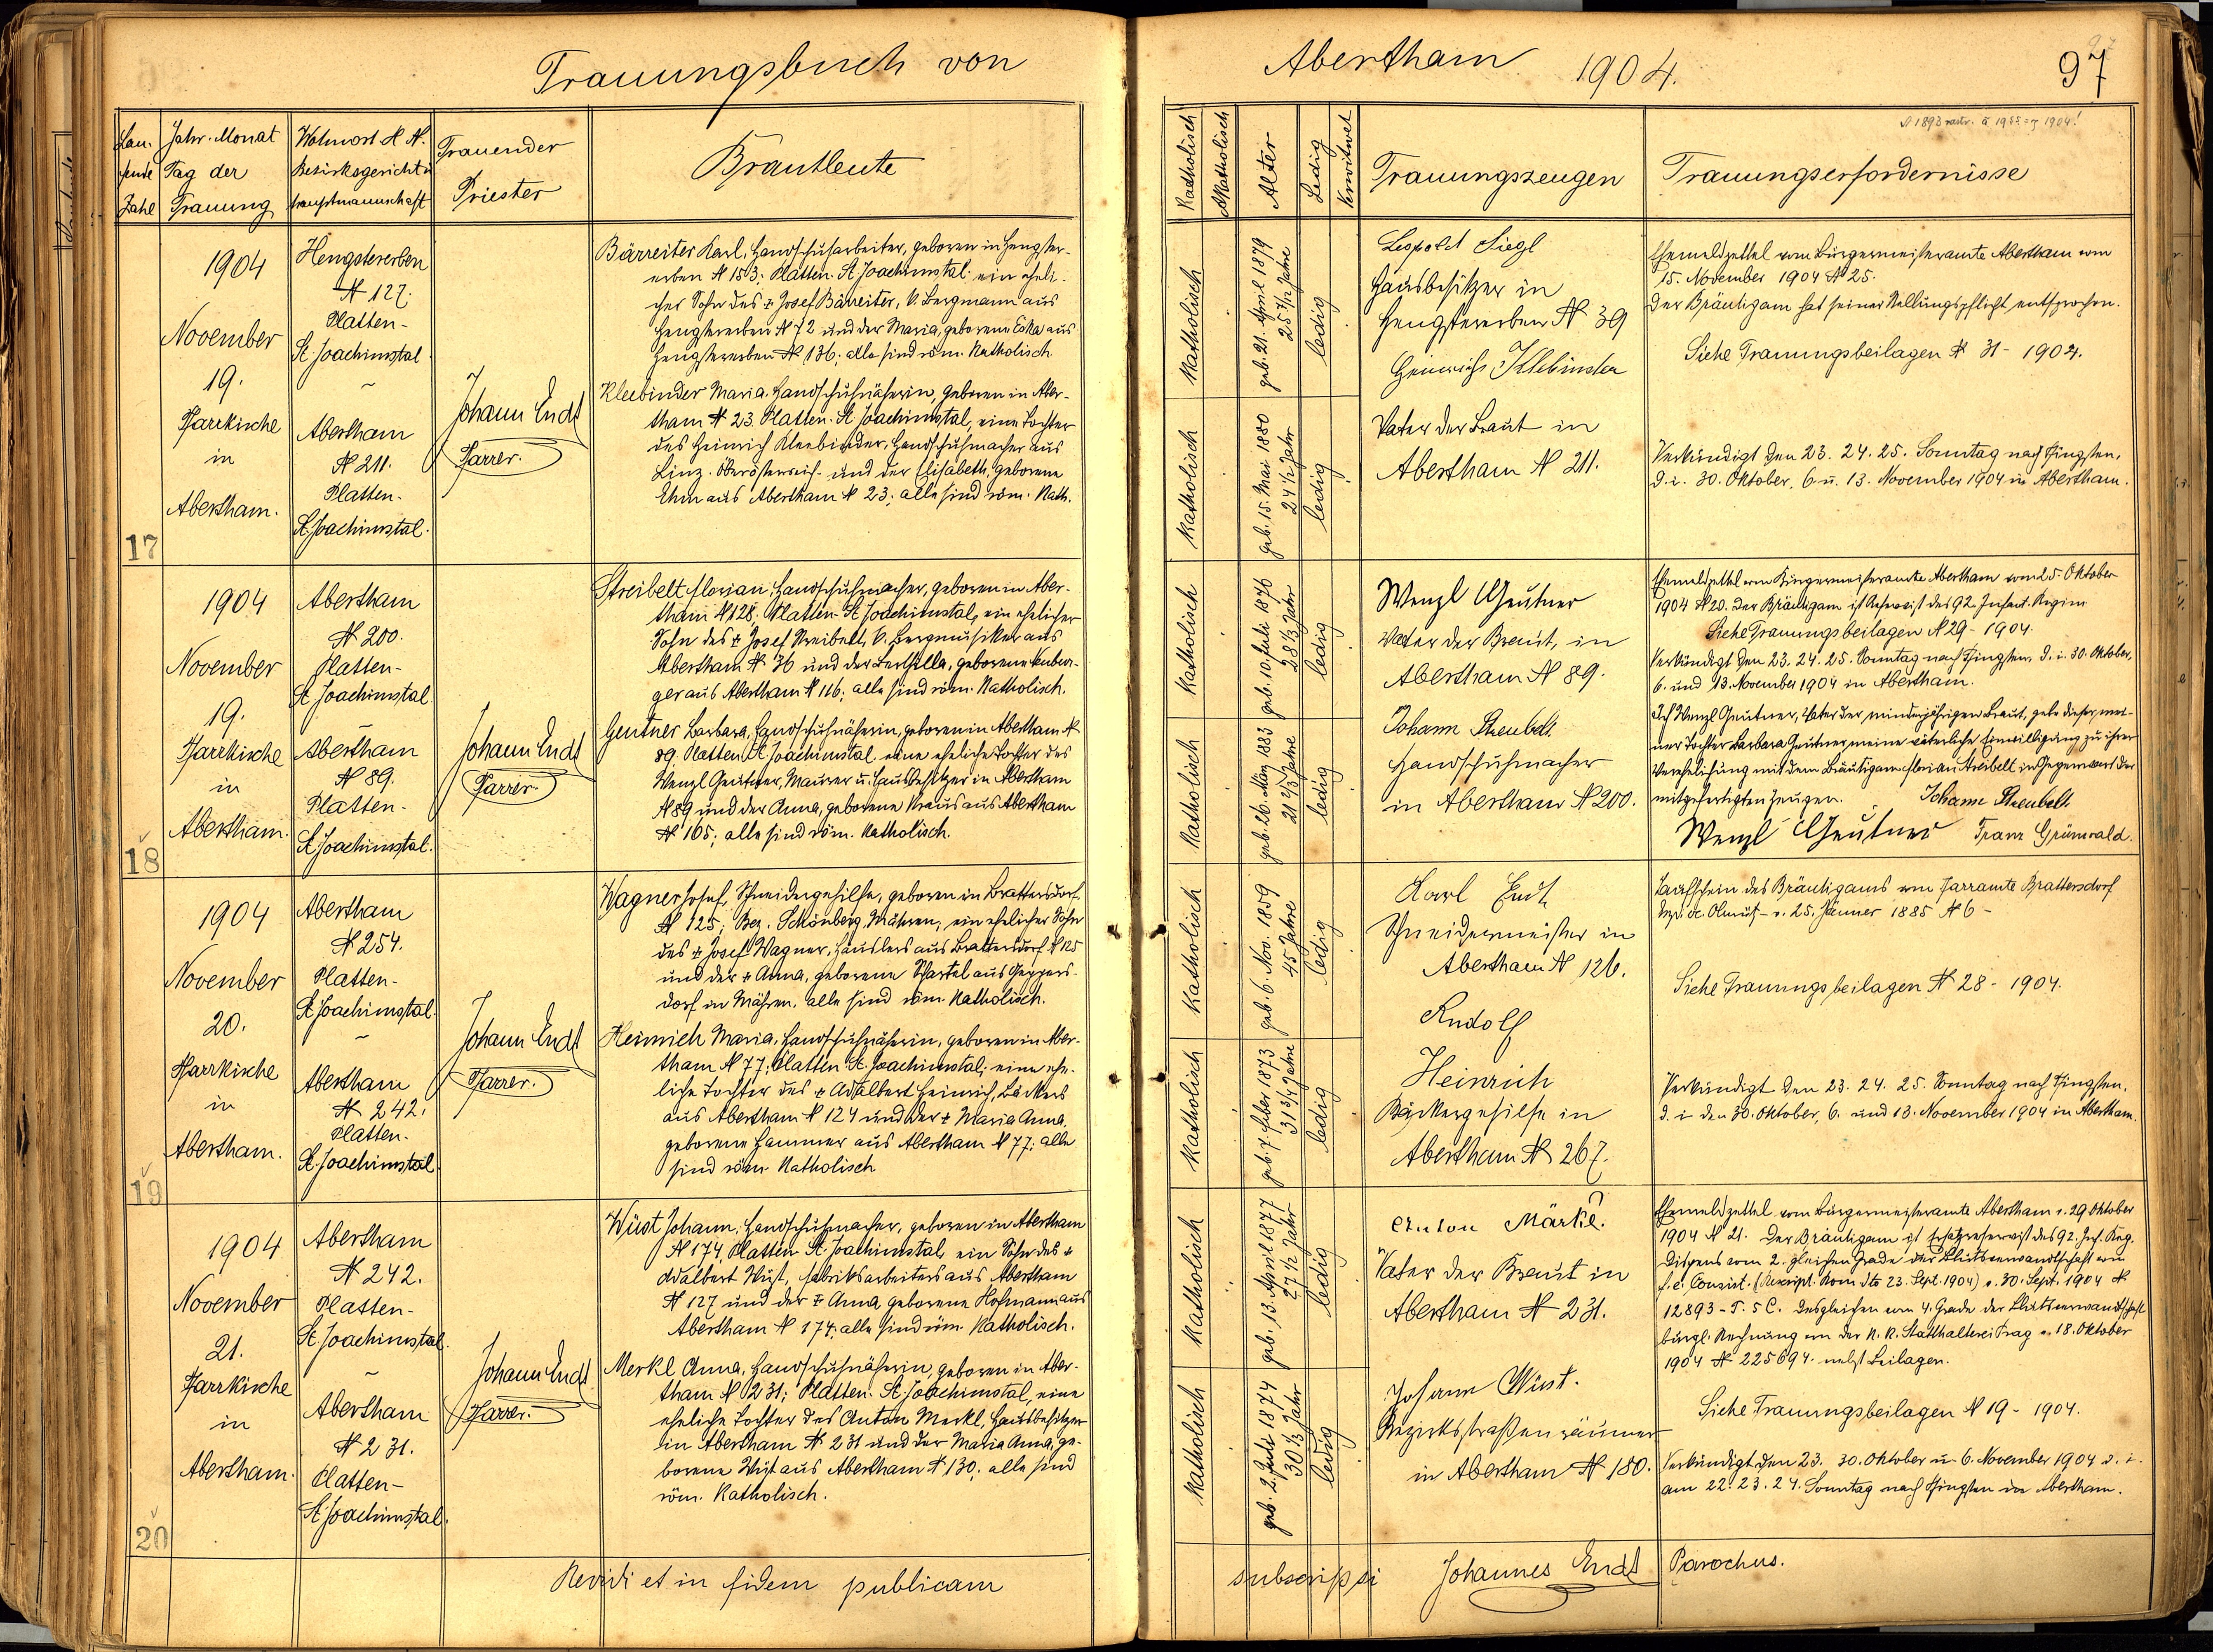 Trauungsbuch von
Abertham 1904.
97
Lau-
fende
Zahl
Jahr. Monat
Tag der
Trauung
Wohnort H N.
Bezirksgericht u
hauptmannschaft
Trauender
Priester
Brautleute
Katholisch
Akatholisch
Alter
Ledig
Verwitwet
Trauungszeugen
Trauungserfordernisse
17
1904
November
19.
Pfarrkirche
in
Abertham.
Hengstererben
N 127;
Platten-
St Joachimstal
~
Abertham
N 211.
Platten-
St. Joachimstal.
Johann Endt
Pfarrer.
Bärreiter Karl, Handschuharbeiter, geboren in Hengster-
erben N 153; Platten-St Joachimstal; ein eheli-
cher Sohn des + Josef Bärreiter, k. Bergmann aus
Hengstererben N 72 und der Maria, geborene aus
Hengstererben N 136; alle sind röm. Katholisch
Kleebinder Maria, Handschuhnäherin, geboren in Aber-
tham N 23. Platten-St Joachimstal, eine Tochter
des Heinrich Kleebinder, Handschuhmacher aus
Linz. Oberösterreich. und der Elisabeth, geborene
Ehm aus Abertham N 23; alle sind röm. Kath.
Katholisch
geb. 21. April 1879
25 7/12 Jahre
ledig
Katholisch
geb. 15. Mai 1880
24 1/2 Jahr
ledig
Leopold Siegl
Hausbesitzer in
Hengstererben N 39
Heinrich Klebinder
Vater der Braut in
Abertham N 211.
Ehemeldzettel vom Bürgermeisteramte Abertham vom
15. November 1904 N 25.
Der Bräutigam hat seiner Stellungspflicht entsprochen.
Siehe Trauungsbeilagen N 31 - 1904.
Verkündigt den 23. 24. 25. Sonntag nach Pfingsten,
d. i. 30. Oktober, 6. u. 13. November 1904 in Abertham.
18
1904
November
19.
Pfarrkirche
in
Abertham.
Abertham
N 200.
Platten-
St Joachimstal
~
Abertham
N 89.
Platten-
St Joachimstal.
Johann Endt
Pfarrer.
Streibelt Florian, Handschuhmacher, geboren in Aber-
tham N 128; Platten-St Joachimstal, ein ehelicher
Sohn des + Josef Streibelt, k. Bergmusiker aus
Abertham N 36 und der Berthilla, geborene
ger aus Abertham N 116; alle sind röm. Katholisch.
Geutner Barbara, Handschuhnäherin, geboren in Abertham N
89. Platten St Joachimstal eine eheliche Tochter des
Wenzl Geutner, Maurer u. Hausbesitzer in Abertham
N 89 und der Anna, geborene Kraus aus Abertham
N 165; alle sind röm. Katholisch.
Katholisch
geb. 10. Juli 1876
28 1/3 Jahr
ledig
Katholisch
geb. 26. März 1883
21 2/3 Jahre
ledig
Wenzl Geutner
Vater der Braut, in
Abertham N 89.
Johann Streubelt
Handschuhmacher
in Abertham N 200.
Ehemeldzettel vom Bürgermeisteramte Abertham vom 25. Oktober
1904 N 20. Der Bräutigam ist Reservist des 92. Infant. Regim.
Siehe Trauungsbeilagen N 29 - 1904.
Verkündigt den 23. 24. 25. Sonntag nach Pfingsten, d. i. 30. Oktober,
6. und 13. November 1904 in Abertham.
Ich Wenzl Geutner, Vater der minderjährigen Braut, gebe dieser, mei-
ner Tochter Barbara Geutner, meine väterliche Einwilligung zu ihrer
Verehelichung mit dem Bräutigam Florian Streibelt in Gegenwart der
mitgefertigten Zeugen. Johann Streubelt
Wenzl Geutner Franz Grünwald.
19
1904
November
20.
Pfarrkirche
in
Abertham.
Abertham
N 254.
Platten-
St Joachimstal.
~
Abertham
N 242.
Platten-
St. Joachimstal
Johann Endt
Pfarrer.
Wagner Josef, Schneidergehilfe, geboren in Brattersdorf
N 125; Bez. Schönberg, Mähren; ein ehelicher Sohn
des + Josef Wagner, Häuslers aus Brattersdorf N 125
und der + Anna, geborene Schartel aus Geppers-
dorf in Mähren, alle sind röm. Katholisch.
Heinrich Maria, Handschuhnäherin, geboren in Aber-
tham N 77; Platten St. Joachimstal; eine ehe-
liche Tochter des + Adalbert Heinrich, Bäckers
aus Abertham N 124 und der + Maria Anna,
geborene Hammer aus Abertham N 77; alle
sind röm. Katholisch
Katholisch
geb. 6. Nov. 1859
45 Jahre
ledig
Katholisch
geb. 7. Feber 1873
31 3/4 Jahre
ledig
Karl Endt
Schneidermeister in
Abertham N 126.
Rudolf
Heinrich
Bäckergehilfe in
Abertham N 267.
Taufschein des Bräutigams vom Pfarramte Brattersdorf
Olmütz - v. 25. Jänner 1885 N 6 -
Siehe Trauungsbeilagen N 28 - 1904.
Verkündigt den 23. 24. 25. Sonntag nach Pfingsten.
d. i. den 30. Oktober, 6. und 13. November 1904 in Abertham.
20
1904
November
21.
Pfarrkirche
in
Abertham.
Abertham
N 242.
Platten-
St. Joachimstal.
~
Abertham
N 231.
Platten-
St Joachimstal.
Johann Endt
Pfarrer.
Wüst Johann, Handschuhmacher, geboren in Abertham
N 174, Platten St. Joachimstal, ein Sohn des +
Adalbert Wüst, Fabriksarbeiters aus Abertham
N 127 und der + Anna, geborene Hofmann aus
Abertham N 174; alle sind röm. Katholisch.
Merkl Anna, Handschuhnäherin, geboren in Aber-
tham N 231; Platten-St. Joachimstal, eine
eheliche Tochter des Anton Merkl, Hausbesitzer
in Abertham N 231 und der Maria Anna, ge-
borene Wüst aus Abertham N 130; alle sind
röm. Katholisch.
Katholisch
geb. 13. April 1877
27 1/2 Jahr
ledig
Katholisch
geb. 2. Juli 1874
30 1/3 Jahr
ledig
Anton Märkl.
Vater der Braut in
Abertham N 231.
Johann Wüst.
Bezirksstraßenräumer
in Abertham N 180.
Ehemeldzettel vom Bürgermeisteramte Abertham v. 29 Oktober
1904 N 21. Der Bräutigam ist Ersatzreservist des 92. Inf. Reg.
Dispens vom 2. gleichen Grade der Blutsverwandtschaft vom
f. e. Consist. (Reskript. Rom dto 23. Sept. 1904) v. 30. Sept. 1904 N
12893 - T. 5 C. Desgleichen vom 4. Grade der Blutsverwandtschaft
bürgl. Rechnung von der K. K. Statthalterei Prag v. 18. Oktober
1904 N 225694. nebst Beilagen.
Siehe Trauungsbeilagen N 19 - 1904.
Verkündigt den 23. 30. Oktober u. 6. November 1904 d. i.
am 22. 23. 24. Sonntag nach Pfingsten in Abertham.
Revidi et in fidem publicam
subscripsi Johannes Endt Parochus.